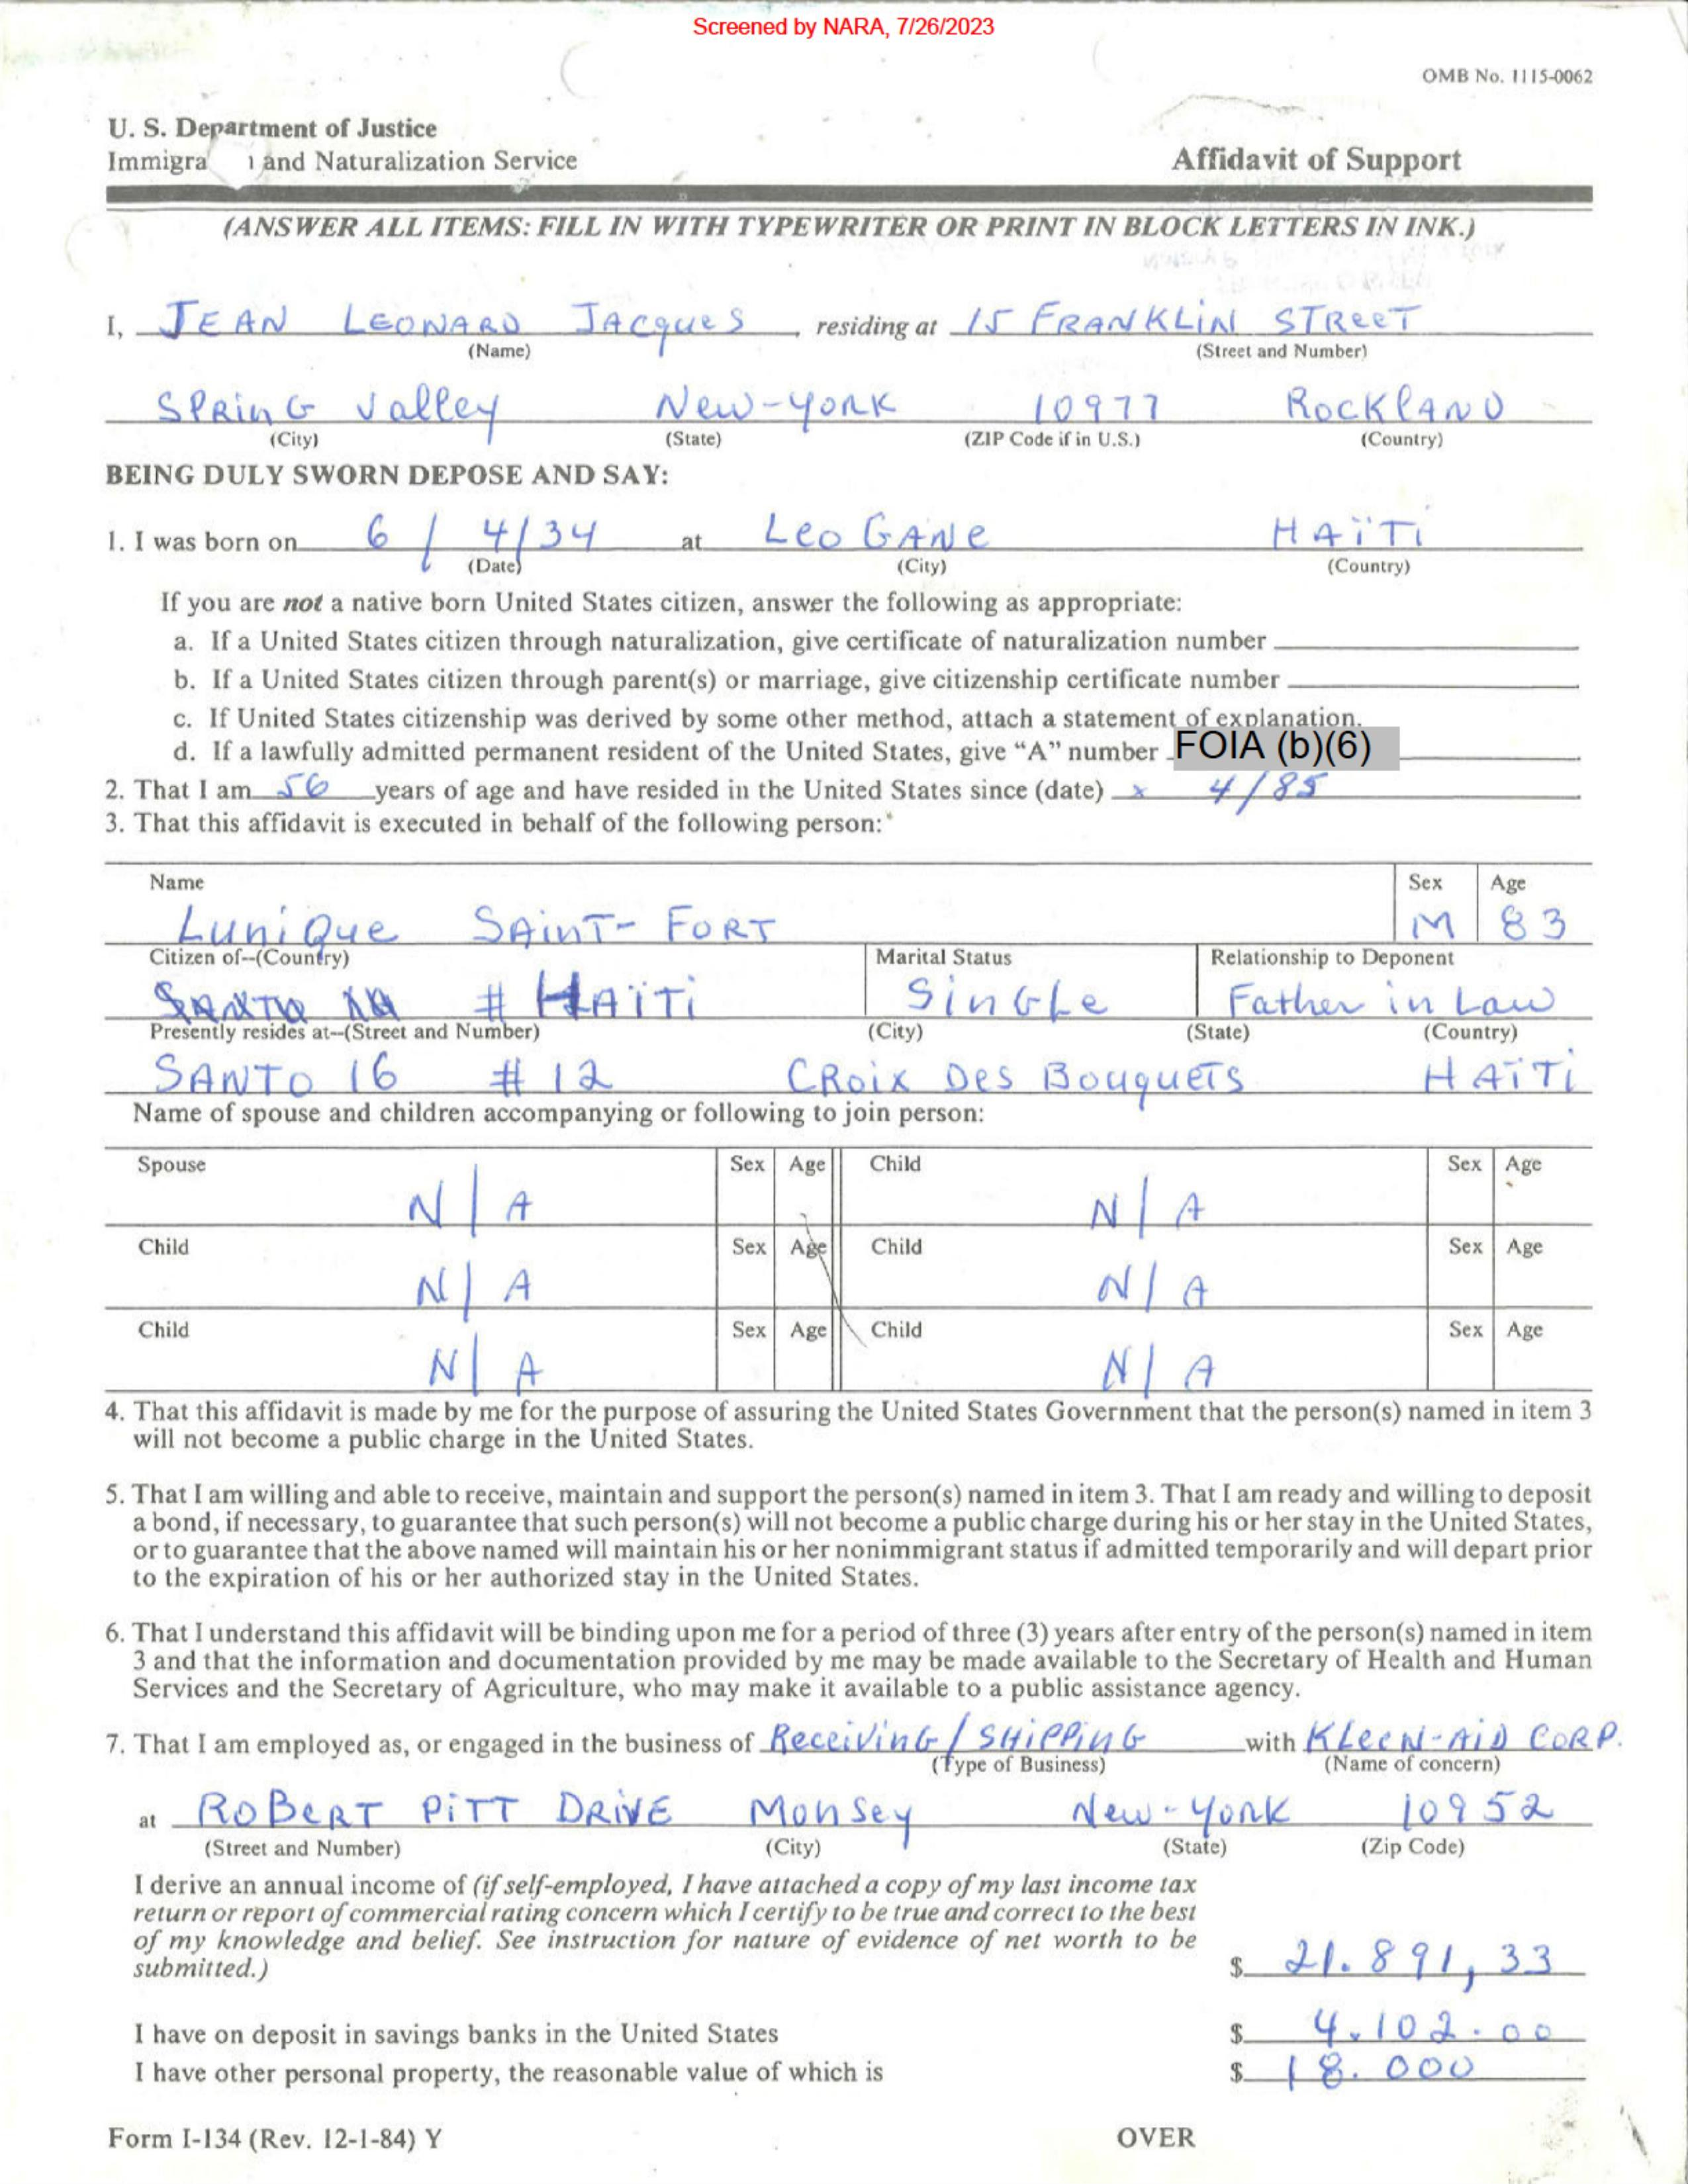 Screened by NARA, 7/26/2023
OMB No. 1115-0062
U. S. Department of Justice
Immigra and Naturalization Service Affidavit of Support
(ANSWER ALL ITEMS: FILL IN WITH TYPEWRITER OR PRINT IN BLOCK LETTERS IN INK.)
I, JEAN LEONARD JACQUES, residing at 15 FRANKLIN STREET
(Name) (Street and Number)
SPRING Valley New-York 10977 ROCKLAND
(City) (State) (ZIP Code if in U.S.) (Country)
BEING DULY SWORN DEPOSE AND SAY:
1. I was born on 6 / 4/34 at LEOGANE HAÏTI
(Date) (City) (Country)
If you are not a native born United States citizen, answer the following as appropriate:
a. If a United States citizen through naturalization, give certificate of naturalization number
b. If a United States citizen through parent(s) or marriage, give citizenship certificate number
c. If United States citizenship was derived by some other method, attach a statement of explanation.
d. If a lawfully admitted permanent resident of the United States, give “A” number FOIA (b)(6)
2. That I am 56 years of age and have resided in the United States since (date) x 4/85
3. That this affidavit is executed in behalf of the following person:
Name Sex Age
Lunique SAINT-FORT M 83
Citizen of--(Country) Marital Status Relationship to Deponent
# HAÏTI Single Father in Law
Presently resides at--(Street and Number) (City) (State) (Country)
SANTO 16 # 12 CROIX DES BOUQUETS HAÏTI
Name of spouse and children accompanying or following to join person:
Spouse Sex Age Child Sex Age
N/A N/A
Child Sex Age Child Sex Age
N/A N/A
Child Sex Age Child Sex Age
N/A N/A
4. That this affidavit is made by me for the purpose of assuring the United States Government that the person(s) named in item 3
will not become a public charge in the United States.
5. That I am willing and able to receive, maintain and support the person(s) named in item 3. That I am ready and willing to deposit
a bond, if necessary, to guarantee that such person(s) will not become a public charge during his or her stay in the United States,
or to guarantee that the above named will maintain his or her nonimmigrant status if admitted temporarily and will depart prior
to the expiration of his or her authorized stay in the United States.
6. That I understand this affidavit will be binding upon me for a period of three (3) years after entry of the person(s) named in item
3 and that the information and documentation provided by me may be made available to the Secretary of Health and Human
Services and the Secretary of Agriculture, who may make it available to a public assistance agency.
7. That I am employed as, or engaged in the business of Receiving/SHIPPING with KLEEN-AID CORP.
(Type of Business) (Name of concern)
at ROBERT PITT DRIVE Monsey New-York 10952
(Street and Number) (City) (State) (Zip Code)
I derive an annual income of (if self-employed, I have attached a copy of my last income tax
return or report of commercial rating concern which I certify to be true and correct to the best
of my knowledge and belief. See instruction for nature of evidence of net worth to be
submitted.) $ 21.891,33
I have on deposit in savings banks in the United States $ 4.102.00
I have other personal property, the reasonable value of which is $ 18.000
Form I-134 (Rev. 12-1-84) Y OVER